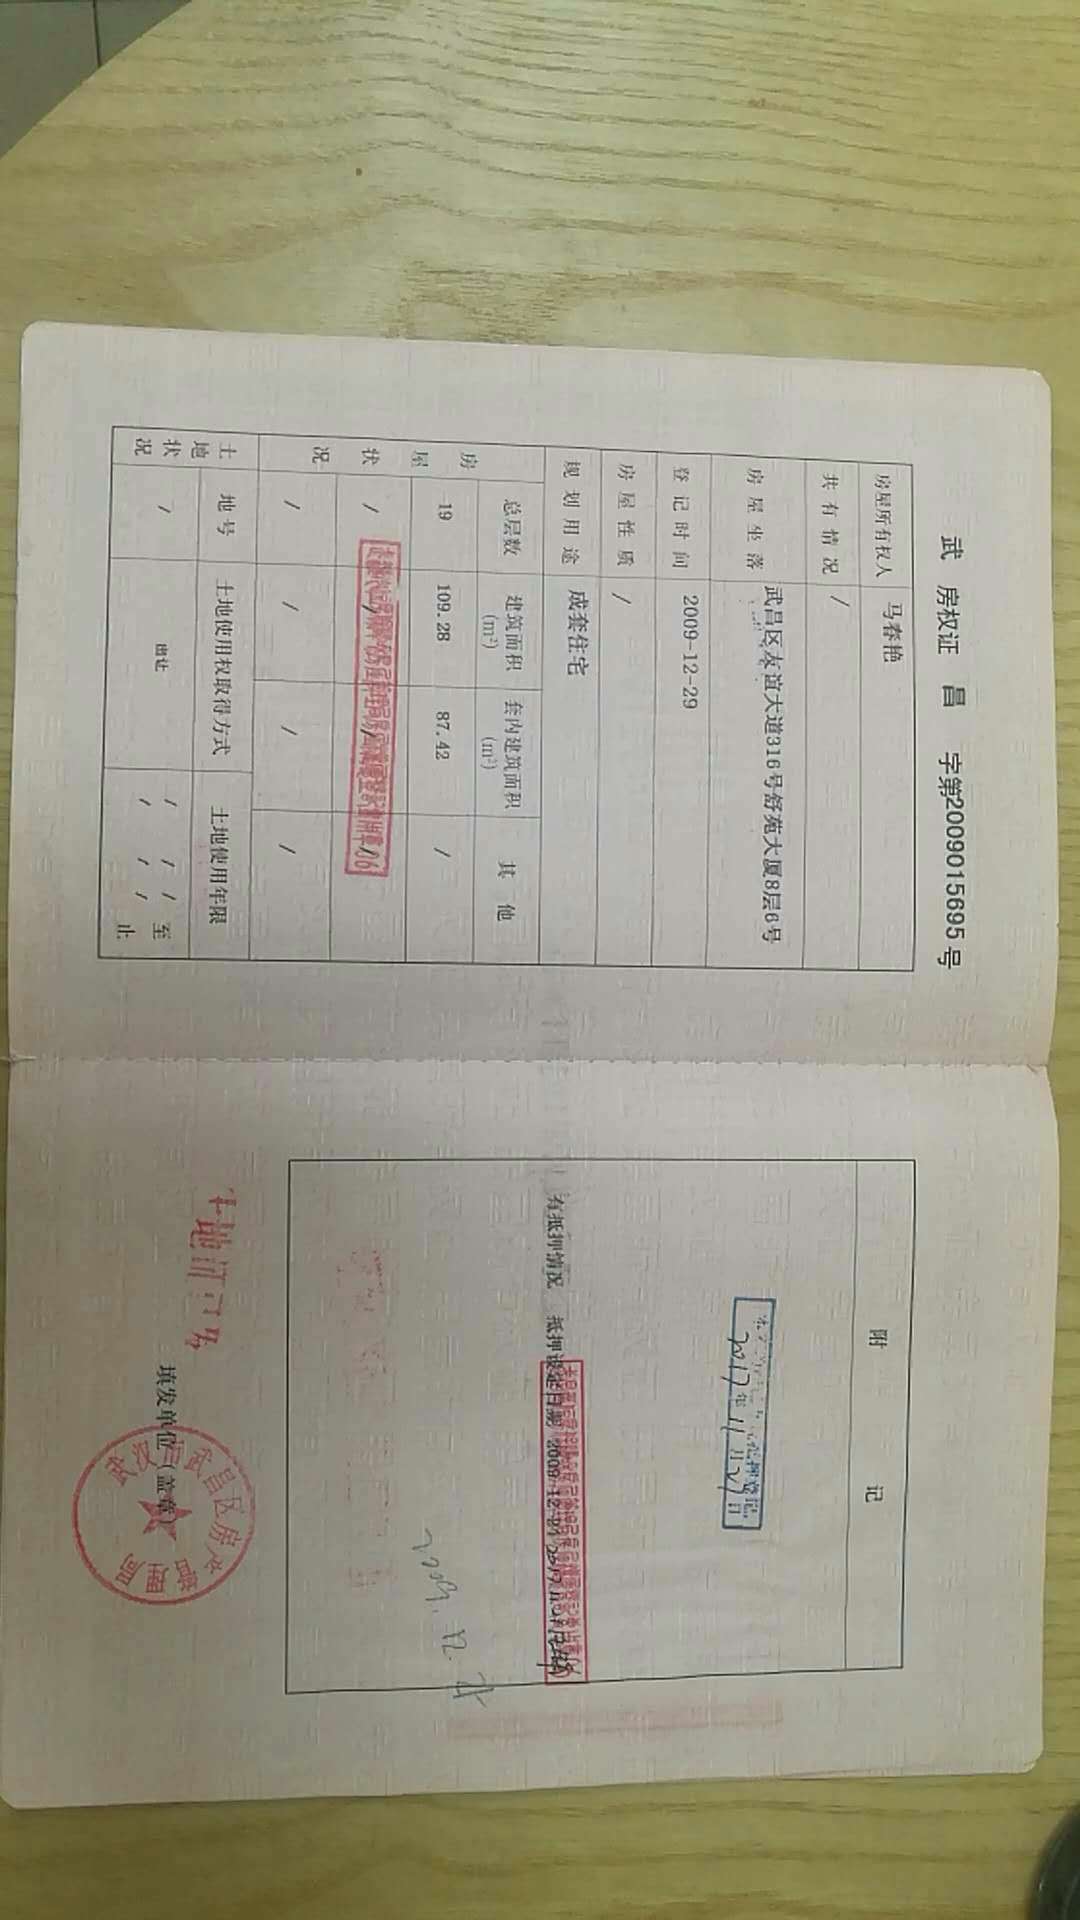 武 房权证 昌 字第2009015695号
房屋所有权人 马春艳
共有情况 /
房屋坐落 武昌区友谊大道316号舒苑大厦8层6号
登记时间 2009-12-29
房屋性质 /
规划用途 成套住宅
房屋状况 总层数 建筑面积(m²) 套内建筑面积(m²) 其他
19 109.28 87.42 /
/ / / /
/ / / /
土地状况 地号 土地使用权取得方式 土地使用年限
/ 出让 / / / 至 / / / 止
附 记
抵押登记
2017年11月21日
有抵押情况 抵押设定日期 2009-12-21
2009.12.21
填发单位（盖章）
武汉市武昌区房产管理局